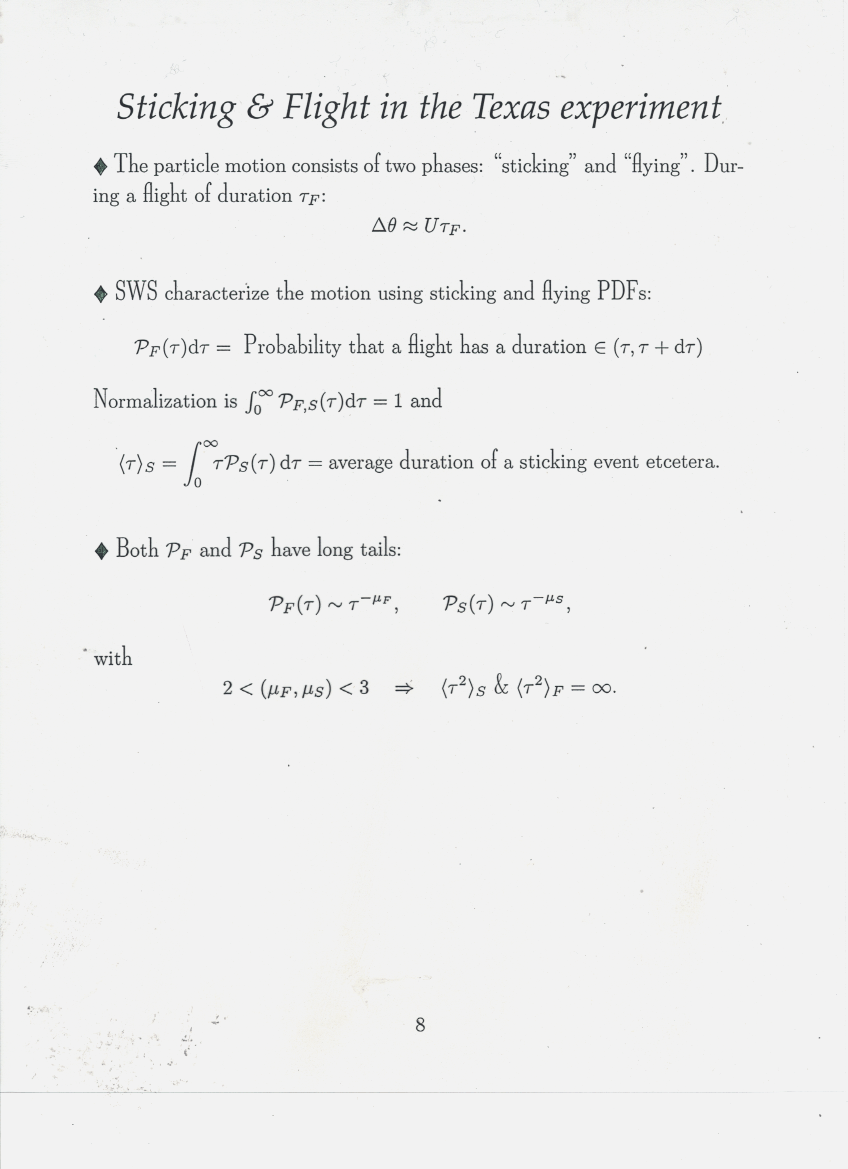 Sticking & Flight in the Texas experiment
♦ The particle motion consists of two phases: “sticking” and “flying”. Dur-
ing a flight of duration τ_F:
Δθ ≈ Uτ_F.
♦ SWS characterize the motion using sticking and flying PDFs:
𝒫_F(τ)dτ = Probability that a flight has a duration ∈ (τ, τ + dτ)
Normalization is ∫_0^∞ 𝒫_{F,S}(τ)dτ = 1 and
⟨τ⟩_S = ∫_0^∞ τ𝒫_S(τ) dτ = average duration of a sticking event etcetera.
♦ Both 𝒫_F and 𝒫_S have long tails:
𝒫_F(τ) ∼ τ^{−μ_F}, 𝒫_S(τ) ∼ τ^{−μ_S},
with
2 < (μ_F, μ_S) < 3 ⇒ ⟨τ^2⟩_S & ⟨τ^2⟩_F = ∞.
8